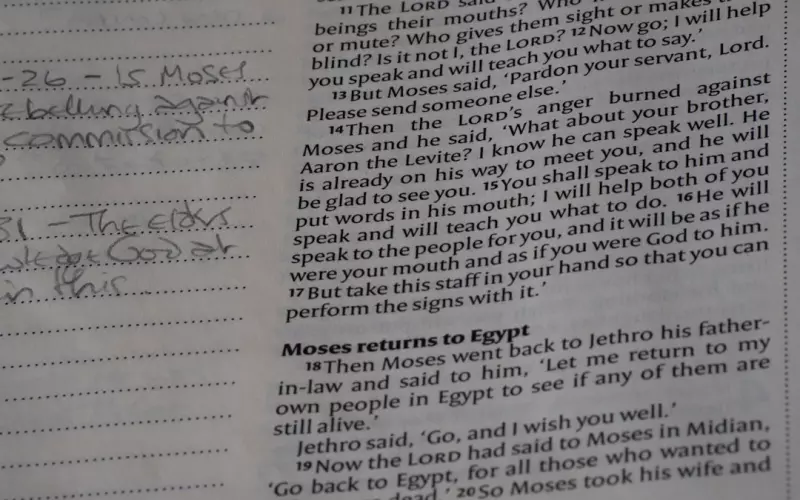 -26 - Is Moses
ebelling against
commission to
31 - The elders
God at
in this
11 The LORD said
beings their mouths? Who
or mute? Who gives them sight or makes
blind? Is it not I, the LORD? 12 Now go; I will help
you speak and will teach you what to say.'
13 But Moses said, 'Pardon your servant, Lord.
Please send someone else.'
14 Then the LORD's anger burned against
Moses and he said, 'What about your brother,
Aaron the Levite? I know he can speak well. He
is already on his way to meet you, and he will
be glad to see you. 15 You shall speak to him and
put words in his mouth; I will help both of you
speak and will teach you what to do. 16 He will
speak to the people for you, and it will be as if he
were your mouth and as if you were God to him.
17 But take this staff in your hand so that you can
perform the signs with it.'
Moses returns to Egypt
18 Then Moses went back to Jethro his father-
in-law and said to him, 'Let me return to my
own people in Egypt to see if any of them are
still alive.'
Jethro said, 'Go, and I wish you well.'
19 Now the LORD had said to Moses in Midian,
'Go back to Egypt, for all those who wanted to
dead.' 20 So Moses took his wife and